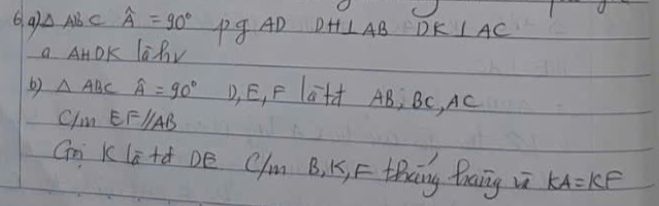 6, a) Δ ABC Â = 90° pg AD DH⊥AB DK⊥AC
a. AHDK là hv
b) Δ ABC Â = 90° D, E, F là tđ AB, BC, AC
C/m EF//AB
Gọi K là tđ DE C/m B, K, F thẳng hàng và KA=KF